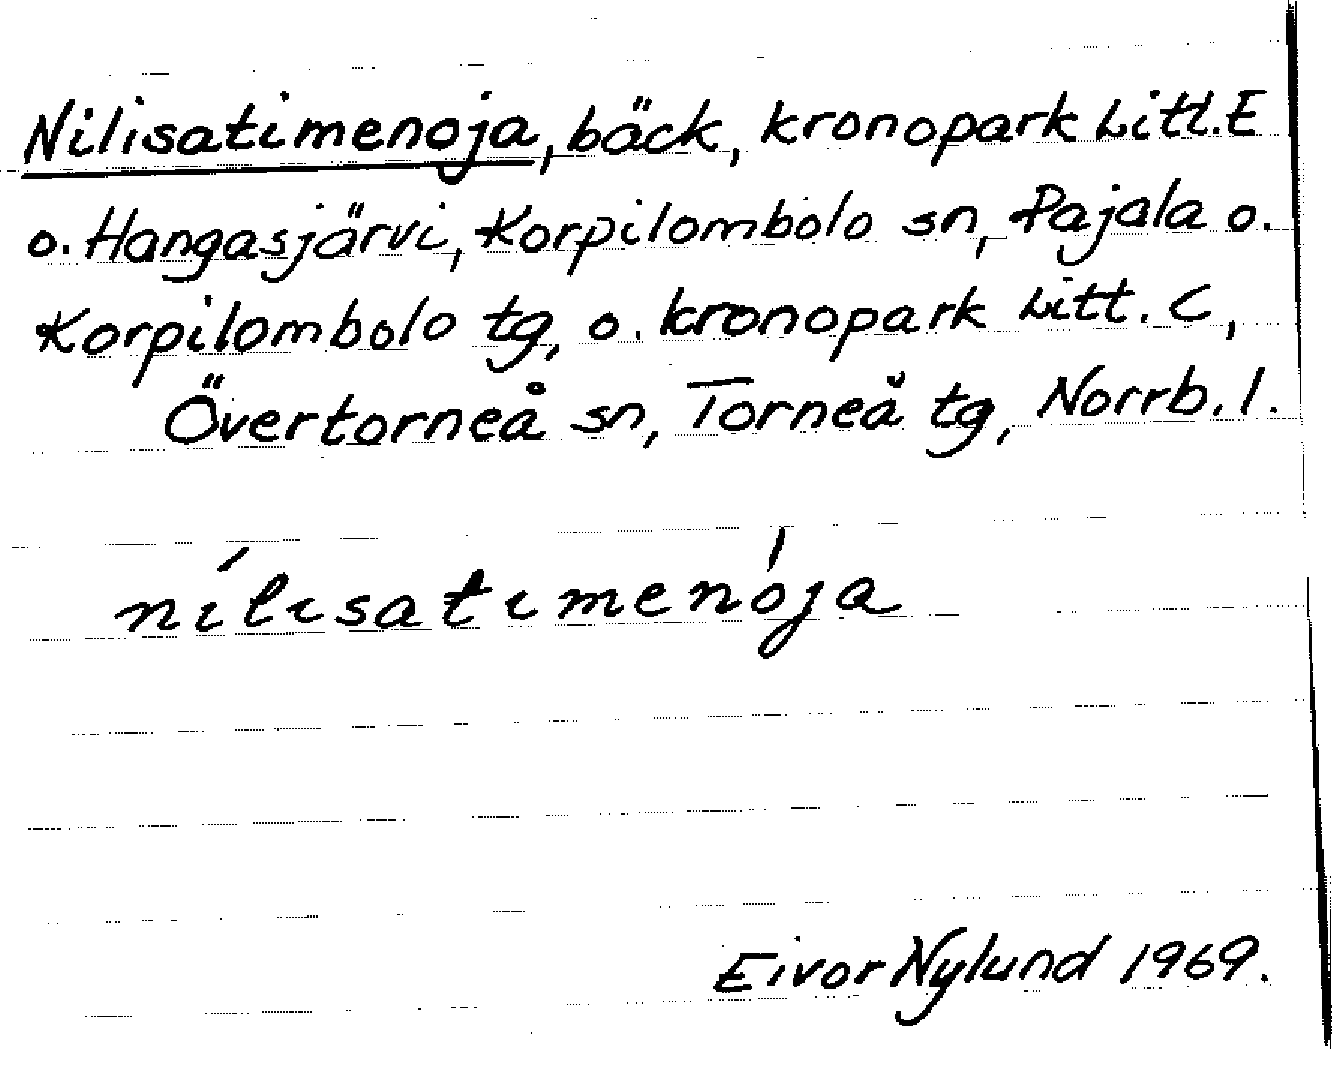 Nilisatimenoja, bäck, kronopark Litt. E
o. Hangasjärvi, Korpilombolo sn, Pajala o.
Korpilombolo tg, o. kronopark Litt. C,
Övertorneå sn, Torneå tg, Norrb. l.
nı́lısatımenója
Eivor Nylund 1969.